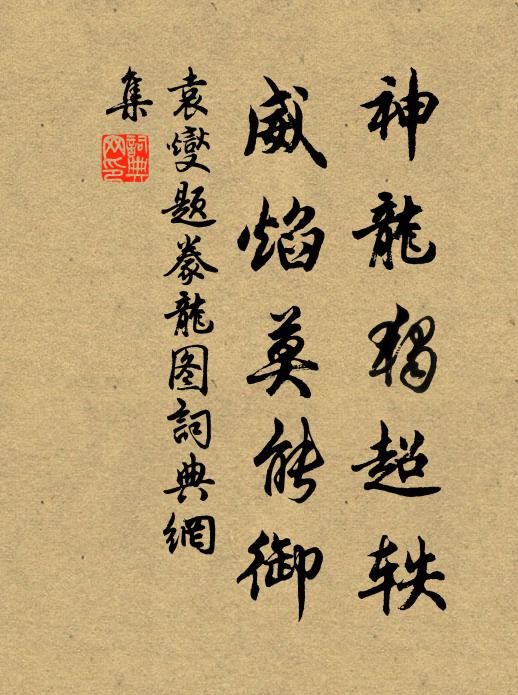 神龍獨超軼
威焰莫能御
袁燮題豢龍图詞典網
集
詞典
网印